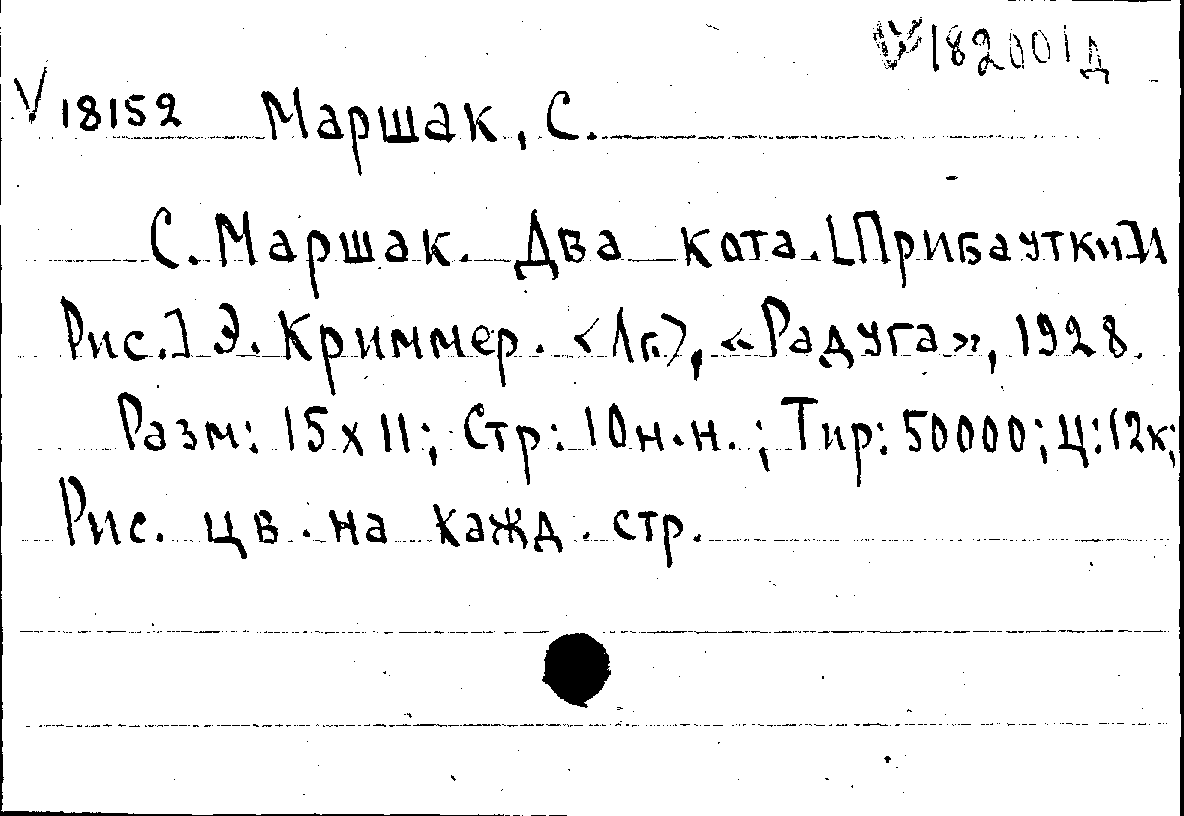 V182001д
V 18152 Маршак, С.
С. Маршак. Два кота. [Прибаутки] И
Рис.] Э. Криммер. <Лг.>, «Радуга», 1928.
Разм: 15x11; Стр: 10 н.н.; Тир: 50000; Ц: 12к;
Рис. цв. на кажд. стр.